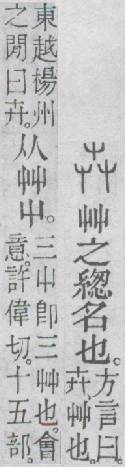 芔 艸之緫名也。方言曰。卉艸也。
東越揚州之閒曰卉。从艸屮。三屮卽三艸也。會意。許偉切。十五部。